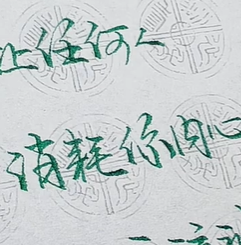 让任何人
消耗你内心